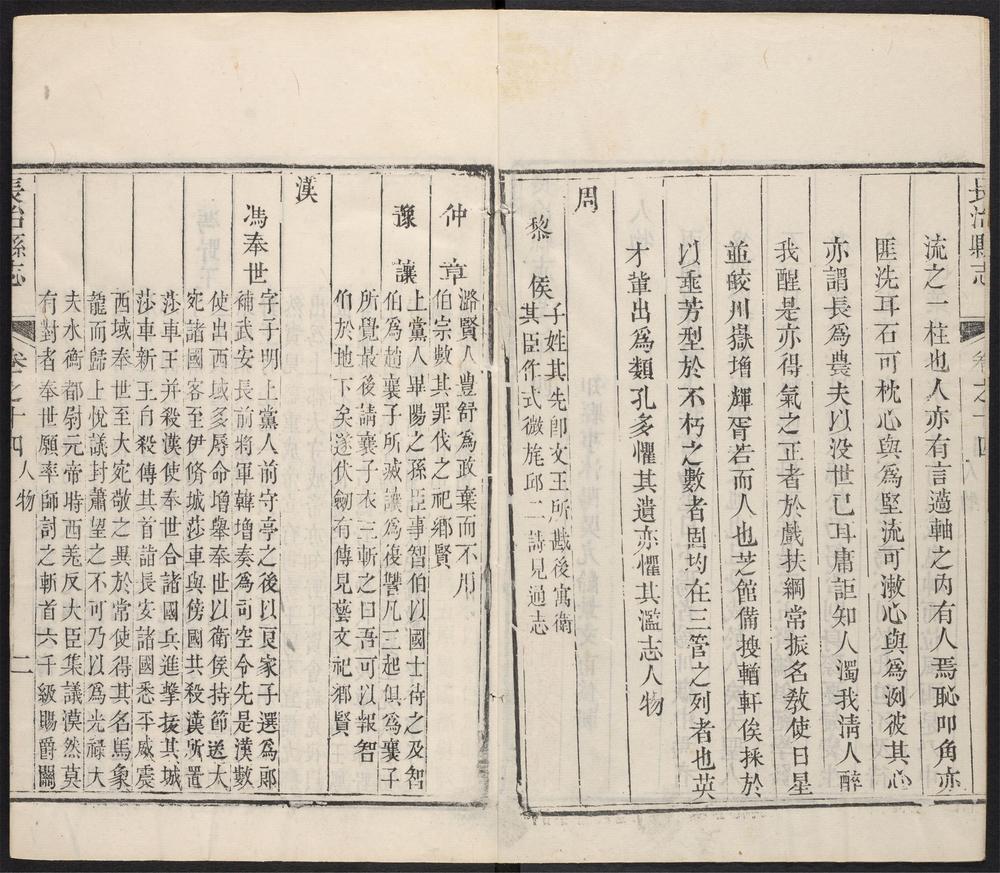 長治縣志
卷之十四
人物
流之一柱也人亦有言薖軸之內有人焉恥叩角亦
匪洗耳石可枕心與爲堅流可漱心與爲冽彼其心
亦謂長爲農夫以没世已耳庸詎知人濁我淸人醉
我醒是亦得氣之正者於戲扶綱常振名敎使日星
並皎川嶽增輝胥若而人也芝館備搜輶軒俟採於
以垂芳型於不朽之數者固均在三管之列者也英
才輩出爲類孔多懼其遺亦懼其濫志人物
周
黎侯
子姓其先卽文王所戡後寓衛
其臣作式微旄邱二詩見通志
仲章
潞賢人豊舒爲政棄而不用
伯宗數其罪伐之祀鄉賢
豫讓
上黨人畢陽之孫臣事智伯以國士待之及智
伯爲趙襄子所滅讓爲復讐凡三起俱爲襄子
所覺最後請襄子衣三斬之曰吾可以報智
伯於地下矣遂伏劒有傳見藝文祀鄉賢
漢
馮奉世
字子明上黨人前守亭之後以良家子選爲郞
補武安長前將軍韓增奏爲司空令先是漢數
使出西域多辱命增舉奉世以衛侯持節送大
宛諸國客至伊脩城莎車與傍國共殺漢所置
莎車王并殺漢使奉世合諸國兵進擊援其城
莎車新王自殺傳其首詣長安諸國悉平威震
西域奉世至大宛敬之異於常使得其名馬象
龍而歸上悅議封蕭望之不可乃以爲光祿大
夫水衡都尉元帝時西羗反大臣集議漠然莫
有對者奉世願率師討之斬首六千級賜爵關
長治縣志
卷之十四
人物
二